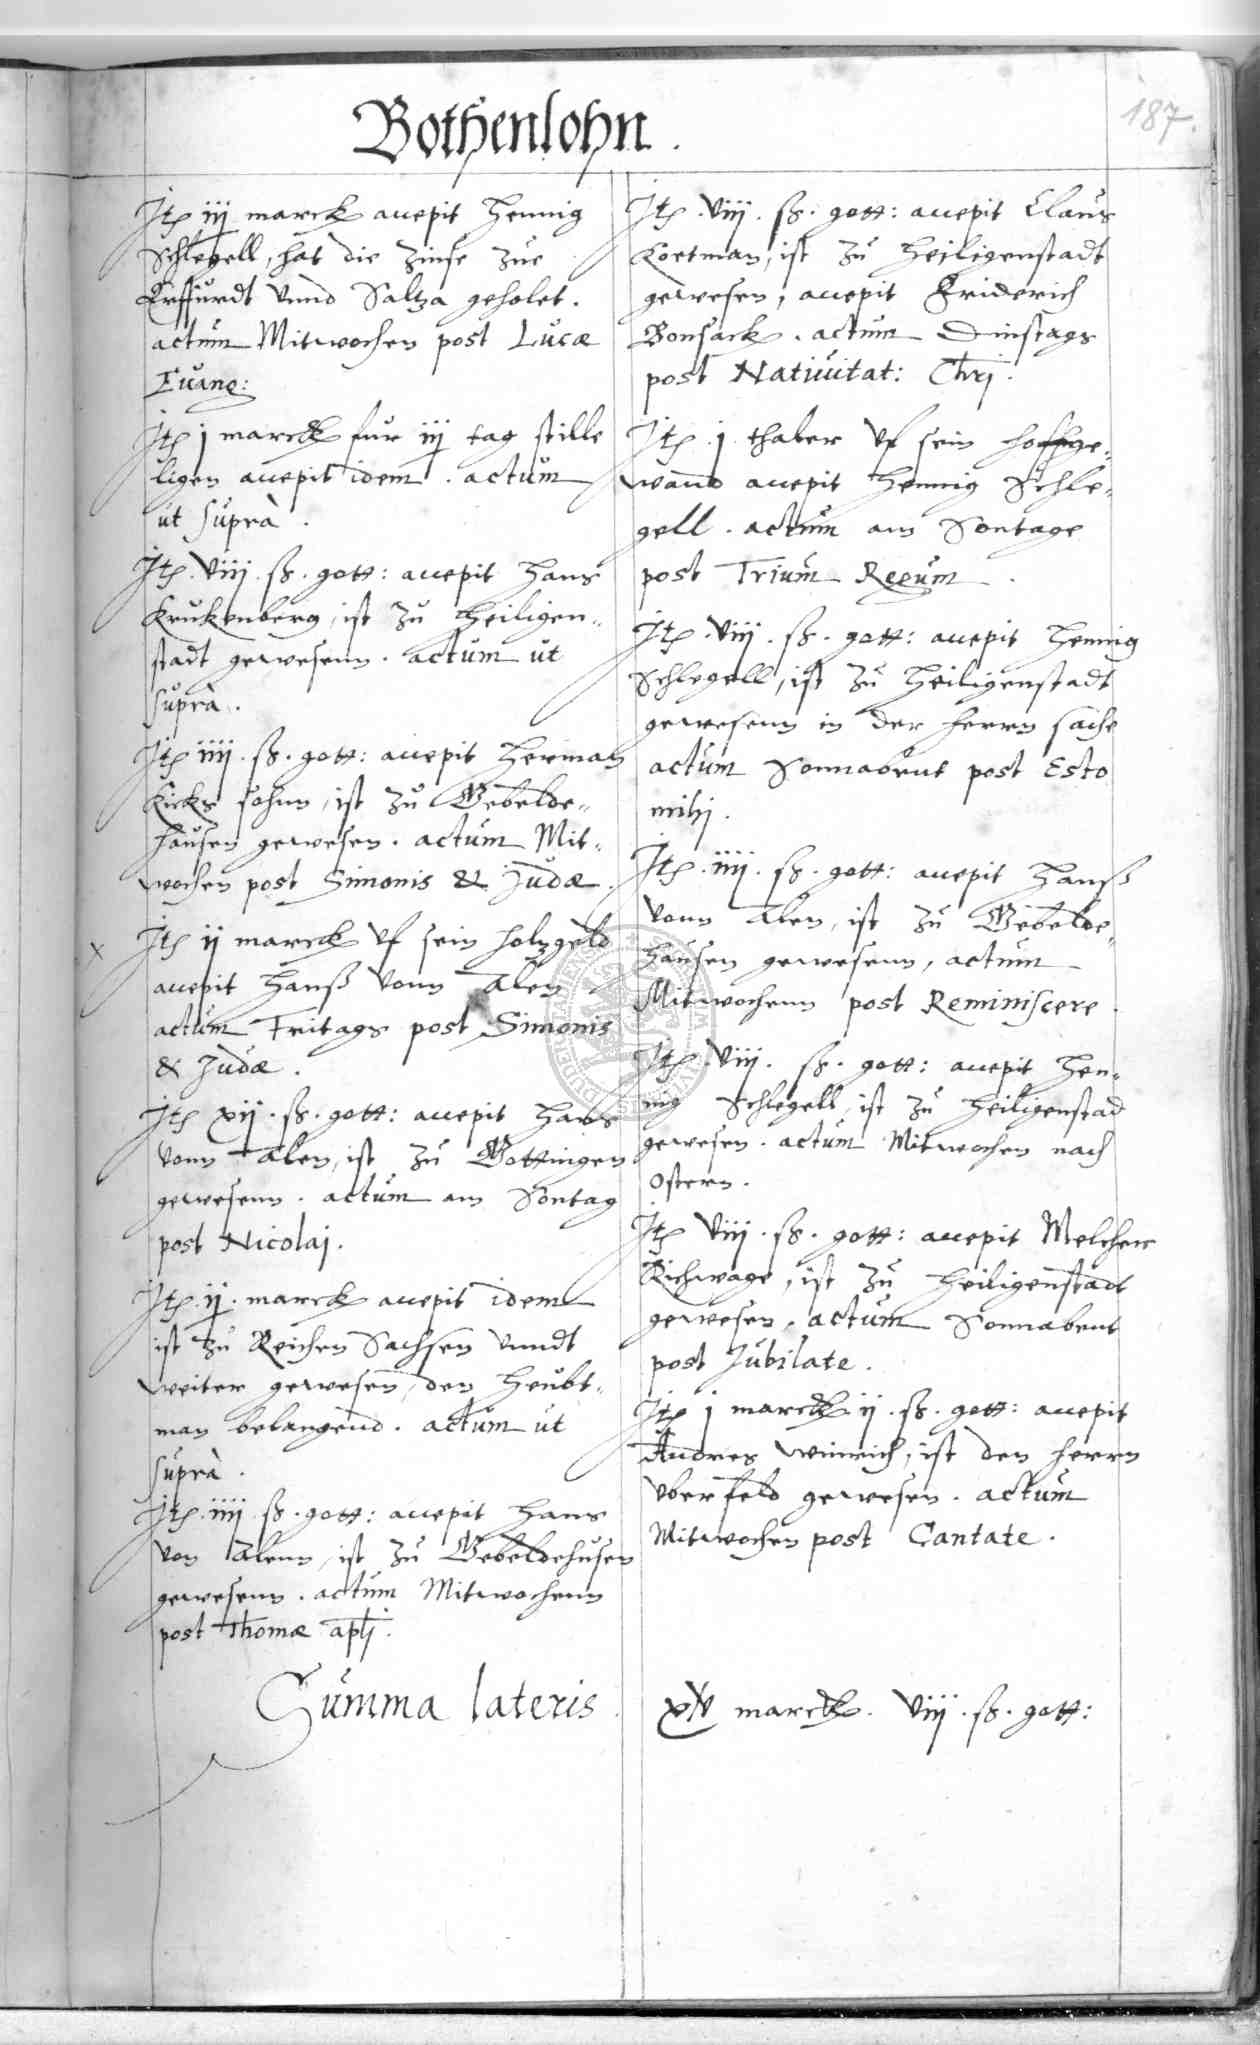 187.
Bothenlohn.
Itē iij marck accepit Hennig
Schlegell, hat die Zinse zue
Erffurdt vnnd Saltza geholet.
actum Mitwochen post Lucæ
Euang:
Itē j marck fur iij tag stille
ligen accepit idem. actum
ut suprà.
Itē. viij. ß. gott: accepit Hans
Krukenberg, ist zu Heiligen„
stadt gewesenn. actum ut
suprà.
Itē iiij. ß. gott: accepit Herman
Kicks sohnn, ist zu Gebelde„
hausen gewesen. actum Mit„
wochen post Simonis & Judæ.
x Itē ij marck vf sein holzgeld
accepit Hanß vonn Alen
actum Fritags post Simonis
& Judæ.
Itē xij. ß. gott: accepit Hans
vonn Alen, ist zu Gottingen
gewesenn. actum am Sontag
post Nicolaj.
Itē. ij. marck accepit idem
ist zu Reichen Sachsen vnndt
weiter gewesen, den Heubt„
man belangend. actum ut
suprà.
Itē. iiij ß. gott: accepit Hans
von Alenn, ist zu Gebeldehusen
gewesenn. actum Mitwochenn
post Thomæ apłj.
Itē. viij. ß. gott: accepit Claus
Kortman, ist zu Heiligenstadt
gewesen, accepit Friderich
Bonsack. actum Dinstags
post Natiuitat: Chrj.
Itē. j. thaler vf sein hoffge„
wand accepit Hennig Schle„
gell. actum am Sontage
post Trium Regum.
Itē. viij. ß. gott: accepit Hennig
Schlegell, ist zu Heiligenstadt
gewesenn in der herrn sache
actum Sonnabent post Esto
mihj.
Itē. iiij. ß. gott: accepit Hanß
vonn Alen, ist zu Gebelde„
hausen gewesenn, actum
Mitwochenn post Reminiscere.
Itē. viij. ß. gott: accepit Hen„
nig Schlegell, ist zu Heiligenstad
gewesen. actum Mitwochen nach
Ostern.
Itē viij. ß. gott: accepit Melcher
Richwage, ist zu Heiligenstadt
gewesen. actum Sonnabent
post Jubilate.
Itē j marck ij. ß. gott: accepit
Andres Winrich, ist den herrn
vber feld gewesen. actum
Mitwochen post Cantate.
Summa lateris. xiv marck. viij. ß. gott: